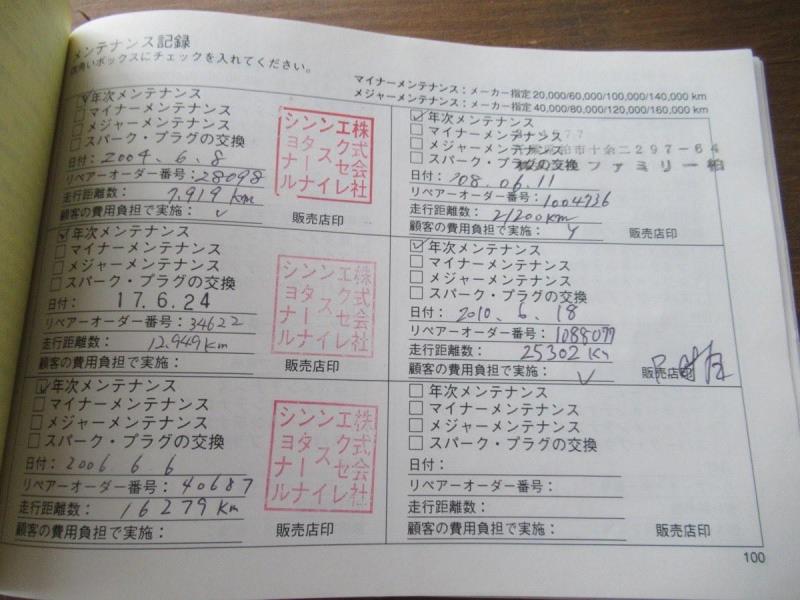 メンテナンス記録
四角いボックスにチェックを入れてください。
マイナーメンテナンス：メーカー指定 20,000/60,000/100,000/140,000 km
メジャーメンテナンス：メーカー指定 40,000/80,000/120,000/160,000 km
年次メンテナンス
マイナーメンテナンス
メジャーメンテナンス
スパーク・プラグの交換
日付：2004.6.8
リペアーオーダー番号：28098
走行距離数：7,919 km
顧客の費用負担で実施：✓
販売店印
株式会社
エクセレイ
ンスイ
シンタナ
ショール
年次メンテナンス
マイナーメンテナンス
メジャーメンテナンス
スパーク・プラグの交換
日付：17.6.24
リペアーオーダー番号：34622
走行距離数：12,949 km
顧客の費用負担で実施：
販売店印
年次メンテナンス
マイナーメンテナンス
メジャーメンテナンス
スパーク・プラグの交換
日付：2006.6.6
リペアーオーダー番号：40687
走行距離数：16279 km
顧客の費用負担で実施：
販売店印
年次メンテナンス
マイナーメンテナンス
メジャーメンテナンス
スパーク・プラグの交換
柏市十余二297-64
ファミリー柏
日付：'08.06.11
リペアーオーダー番号：1004736
走行距離数：21200km
顧客の費用負担で実施：
販売店印
年次メンテナンス
マイナーメンテナンス
メジャーメンテナンス
スパーク・プラグの交換
日付：2010.6.18
リペアーオーダー番号：1088079
走行距離数：25302 Km
顧客の費用負担で実施：✓
販売店印
年次メンテナンス
マイナーメンテナンス
メジャーメンテナンス
スパーク・プラグの交換
日付：
リペアーオーダー番号：
走行距離数：
顧客の費用負担で実施：
販売店印
100